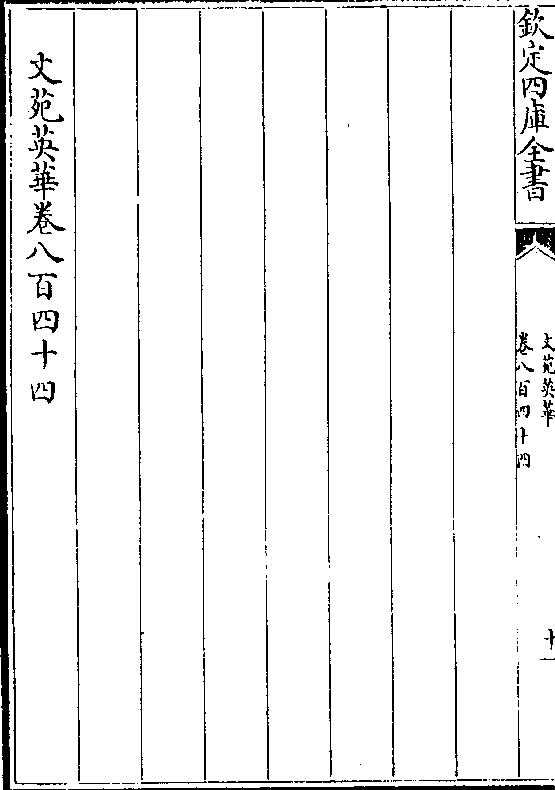 欽定四庫全書
文苑英華
卷八百四十四
十一
文苑英華卷八百四十四